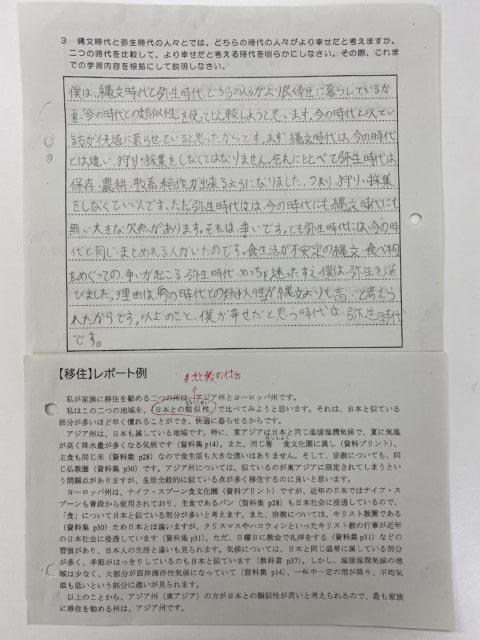 3 縄文時代と弥生時代の人々とでは、どちらの時代の人々がより幸せだと考えますか。
二つの時代を比較して、より幸せだと考える時代を明らかにしなさい。その際、これまで
の学習内容を根拠にして説明しなさい。
僕は、縄文時代と弥生時代、どちらの人々がより良く幸せに暮らしているか
を、"今の時代との類似性"を使って比較しようと思います。今の時代と似てい
る方が快適に暮らせていると思ったからです。まず縄文時代は、今の時代
とは違い、狩り・採集をしなくてはなりません。それに比べて弥生時代は、
保存・農耕・牧畜・稲作が出来るようになりました。つまり、狩り・採集
をしなくていいんです。ただ、弥生時代は、今の時代にも縄文時代にも
無い大きな欠点があります。それは争いです。でも弥生時代には、今の時
代と同じまとめれる人がいたのです。食生活が不安定の縄文、食べ物
をめぐっての争いが起こる弥生時代、めっちゃ迷ったすえ僕は、弥生を選
びました。理由は、今の時代との類似性が縄文よりも高いと考えら
れたからです。以上のこと、僕が幸せだと思う時代は、弥生時代
です。
【移住】レポート例
比較の仕方
私が家族に移住を勧める二つの州は、アジア州とヨーロッパ州です。
私はこの二つの地域を、日本との類似性で比べてみようと思います。それは、日本と似ている
部分が多いほど早く慣れることができ、快適に暮らせるからです。
アジア州は、日本も属している地域です。特に、東アジアは日本と同じ温暖湿潤気候で、夏に気温
が高く降水量が多くなる気候です（資料集 p14）。また、同じ箸 食文化圏に属し（資料プリント）、
主食も同じ米（資料集 p28）なので食生活も大きな違いはありません。そして、宗教についても、同
じ仏教圏（資料集 p30）です。アジア州については、似ているのが東アジアに限定されてしまうとい
う問題点がありますが、生活全般的に似ている点が多く移住するのに良いと思います。
ヨーロッパ州は、ナイフ・スプーン食文化圏（資料プリント）ですが、近年の日本ではナイフ・スプ
ーンも普段から使用しており、主食であるパン（資料集 p28）も日本社会に浸透しているので、
「食」について日本と似ている部分が多いと考えます。また、宗教については、キリスト教圏である
（資料集 p30）ため日本とは違いますが、クリスマスやハロウィンといったキリスト教の行事が近年
の日本社会に浸透しています（資料集 p31）。ただ、日曜日に教会で礼拝をする（資料集 p31）などの
習慣があり、日本人の生活と違いも見られます。気候については、日本と同じ温帯に属している部分が
多く、季節がはっきりしているのも日本と似ています（教科書 p37）。しかし、温暖湿潤気候の地
域は少なく、大部分が西岸海洋性気候になっていて（資料集 p14）、一年中一定の雨が降り、平均気
温も低いという部分に違いが見られます。
以上のことから、アジア州（東アジア）の方が日本との類似性が高いと考えられるので、最も家族
に移住を勧める州は、アジア州です。